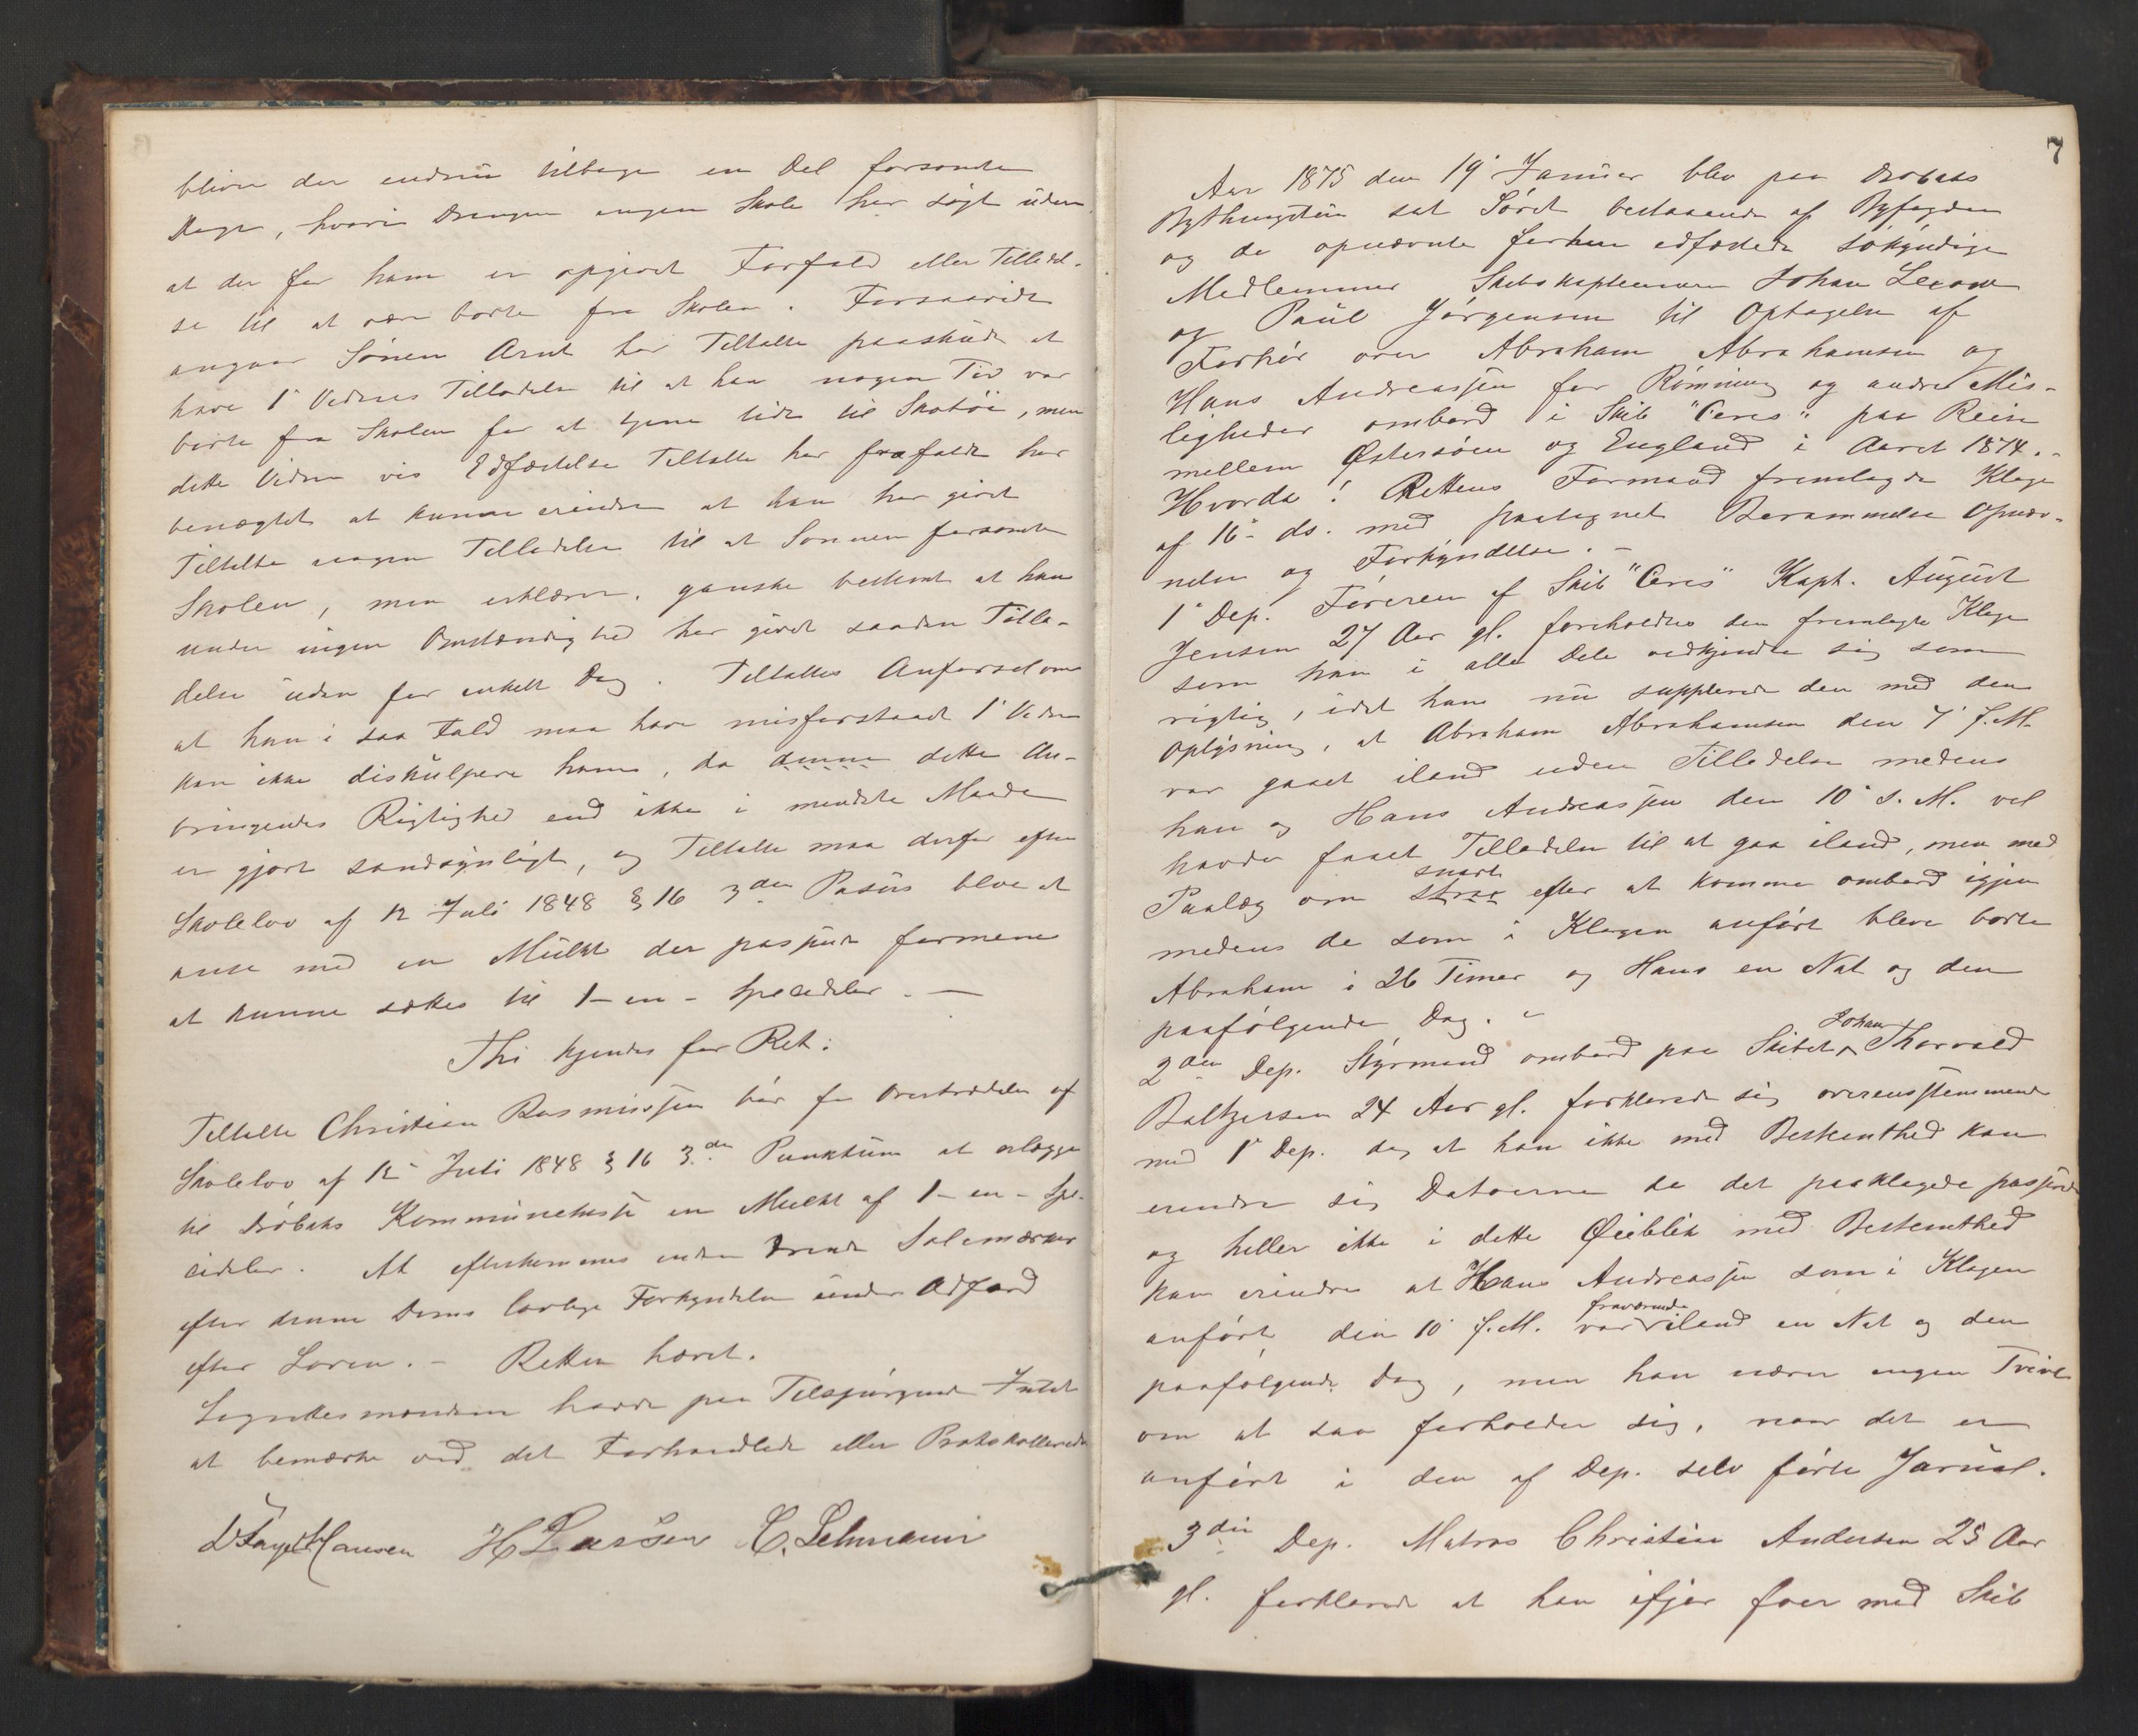 bliver der endnu tilbage en Del forsømte
Dage, hvori Drengen ingen Skole har søgt uden
at der for ham er opgivet Forfald eller Tilladel-
se til at være borte fra Skolen. Forsaavidt
angaar Sønnen Arnt har Tiltalte paaskudt at
have 1' Vidnes Tilladelse til at han nogen Tid var
borte fra Skolen for at tjene lidt til Skotøi, men
dette Vidne vis Edfæstelse Tiltalte har frafaldt har
benægtet at kunne erindre at han har givet
Tiltalte nogen Tilladelse til at Sønnen forsømte
Skolen, men erklærer ganske bestemt at han
under ingen Omstændighed har givet saadan Tilla-
delse uden for enkelt Dag. Tiltaltes Anførsel om
at han i saa Fald maa have misforstaaet 1' Vidne
kan ikke diskulpere ham, da denne dette An-
bringendes Rigtighed end ikke i mindste Maade
er gjort sandsynligt, og Tiltalte maa derfor efter
Skolelov af 12 Juli 1848 § 16 3die Passus blive at
anse med en Mulkt der passende formenes
at kunne sættes til 1 - en - Speciedaler. —
Thi kjendes for Ret:
Tiltalte Christian Rasmussen bør for Overtrædelse af
Skolelov af 12 Juli 1848 § 16 3die Punktum at erlægge
til Drøbaks Kommunekasse en Mulkt af 1 - en - Spe-
ciedaler. At efterkommes inden trende Solemærker
efter denne Doms lovlige Forkyndelse under Adfærd
efter Loven. - Retten hævet.
Lagrettesmændene havde paa Tilspørgende Intet
at bemærke ved det Forhandlede eller Protokollerede
Hansen H Larsen C. Lehmann
7
Aar 1875 den 19' Januar blev paa Drøbaks
Bythingstue sat Søret bestaaende af Byfogden
og de opnævnte forhen edfæstede søkyndige
Medlemmer Skibskapteinerne Johan Lexow
og Paul Jørgensen til Optagelse af
Forhør over Abraham Abrahamsen og
Hans Andreassen for Rømning og andre Mis-
ligheder ombord i Skib "Ceres" paa Reise
mellem Østersøen og England i Aaret 1874.-
Hvorda! Rettens Formand fremlagde Klage
af 16' ds. med paategnet Berammelse Opnæv-
nelse og Forkyndelse. -
1' Dep. Føreren af Skib "Ceres" Kapt. August
Jensen 27 Aar gl. foreholdtes den fremlagte Klage
som han i alle Dele vedkjendte sig som
rigtig, idet han nu supplerede den med den
Oplysning, at Abraham Abrahamsen den 7' s.M.
var gaaet iland uden Tilladelse medens
han og Hans Andreassen den 10' s. M. vel
havde faaet Tilladelse til at gaa iland, men med
snart
Paalæg om strax efter at komme ombord igjen
medens de som i Klagen anført bleve borte
Abraham i 26 Timer og Hans en Nat og den
paafølgende Dag. -
Johan
2den Dep. Styrmand ombord paa Skibet Thorvald
Baltzersen 24 Aar gl. forklarede sig overensstemmende
med 1' Dep. dog at han ikke med Bestemthed kan
erindre sig Datoerne da det paaklagede passerede
og heller ikke i dette Øieblik med Bestemthed
kan erindre at Hans Andreassen som i Klagen
fraværende
anført den 10' s.M. var iland en Nat og den
paafølgende Dag, men han nærer ingen Tvivl
om at saa forholder sig, naar det er
anført i den af Dep. selv førte Jurnal.
3die Dep. Matros Christian Andersen 25 Aar
gl. forklarede at han ifjor foer med Skib